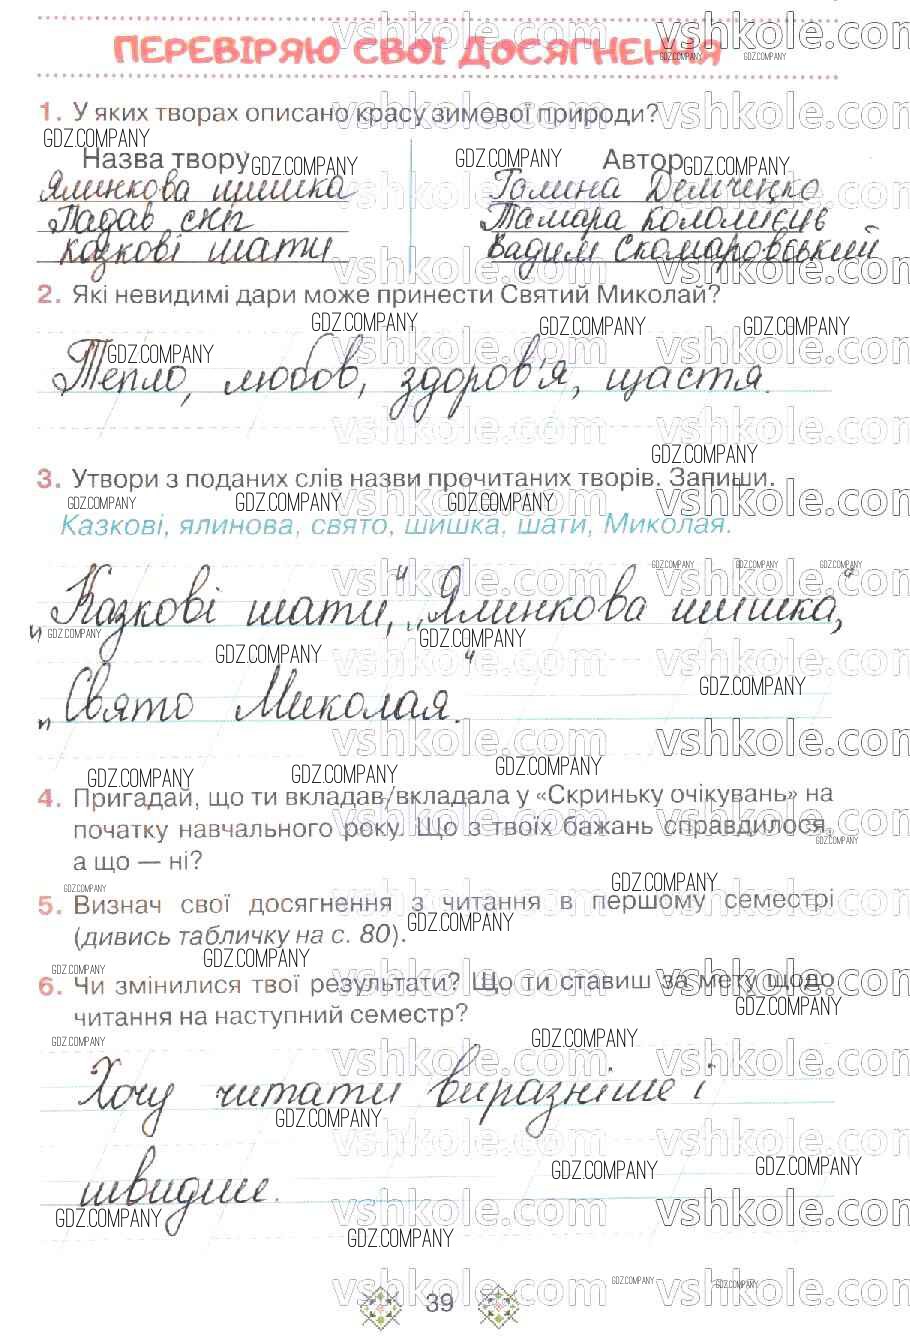 ПЕРЕВІРЯЮ СВОЇ ДОСЯГНЕННЯ
1. У яких творах описано красу зимової природи?
Назва твору Автор
Ялинкова шишка Галина Демченко
Падав сніг Тамара Коломієць
Казкові шати Вадим Скомаровський
2. Які невидимі дари може принести Святий Миколай?
Тепло, любов, здоров'я, щастя.
3. Утвори з поданих слів назви прочитаних творів. Запиши.
Казкові, ялинова, свято, шишка, шати, Миколая.
„Казкові шати", „Ялинкова шишка",
„Свято Миколая".
4. Пригадай, що ти вкладав/вкладала у «Скриньку очікувань» на
початку навчального року. Що з твоїх бажань справдилося,
а що — ні?
5. Визнач свої досягнення з читання в першому семестрі
(дивись табличку на с. 80).
6. Чи змінилися твої результати? Що ти ставиш за мету щодо
читання на наступний семестр?
Хочу читати виразніше і
швидше.
39
vshkole.com
GDZ.COMPANY